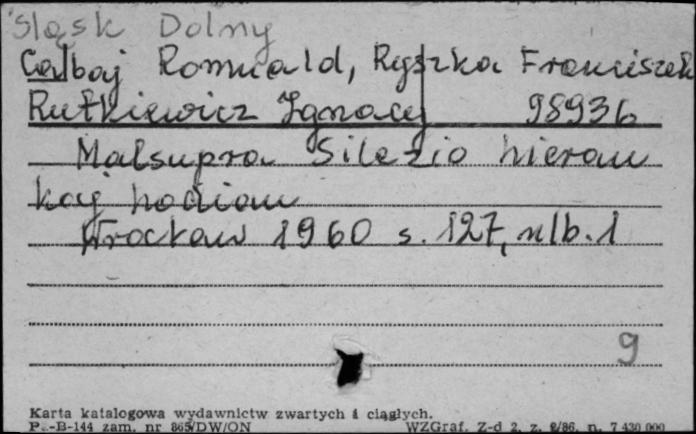 Śląsk Dolny
Całbaj Romuald, Ryszka Franciszek
Rutkiewicz Ignacy 98936
Malsupra Silezio hierau
kaj hodiau
Wrocław 1960 s. 127, nlb. 1
9
Karta katalogowa wydawnictw zwartych i ciągłych.
-B-144 zam. nr 865/DW/ON WZGraf. Z-d 2, z. 2/86, n. 7 430 000